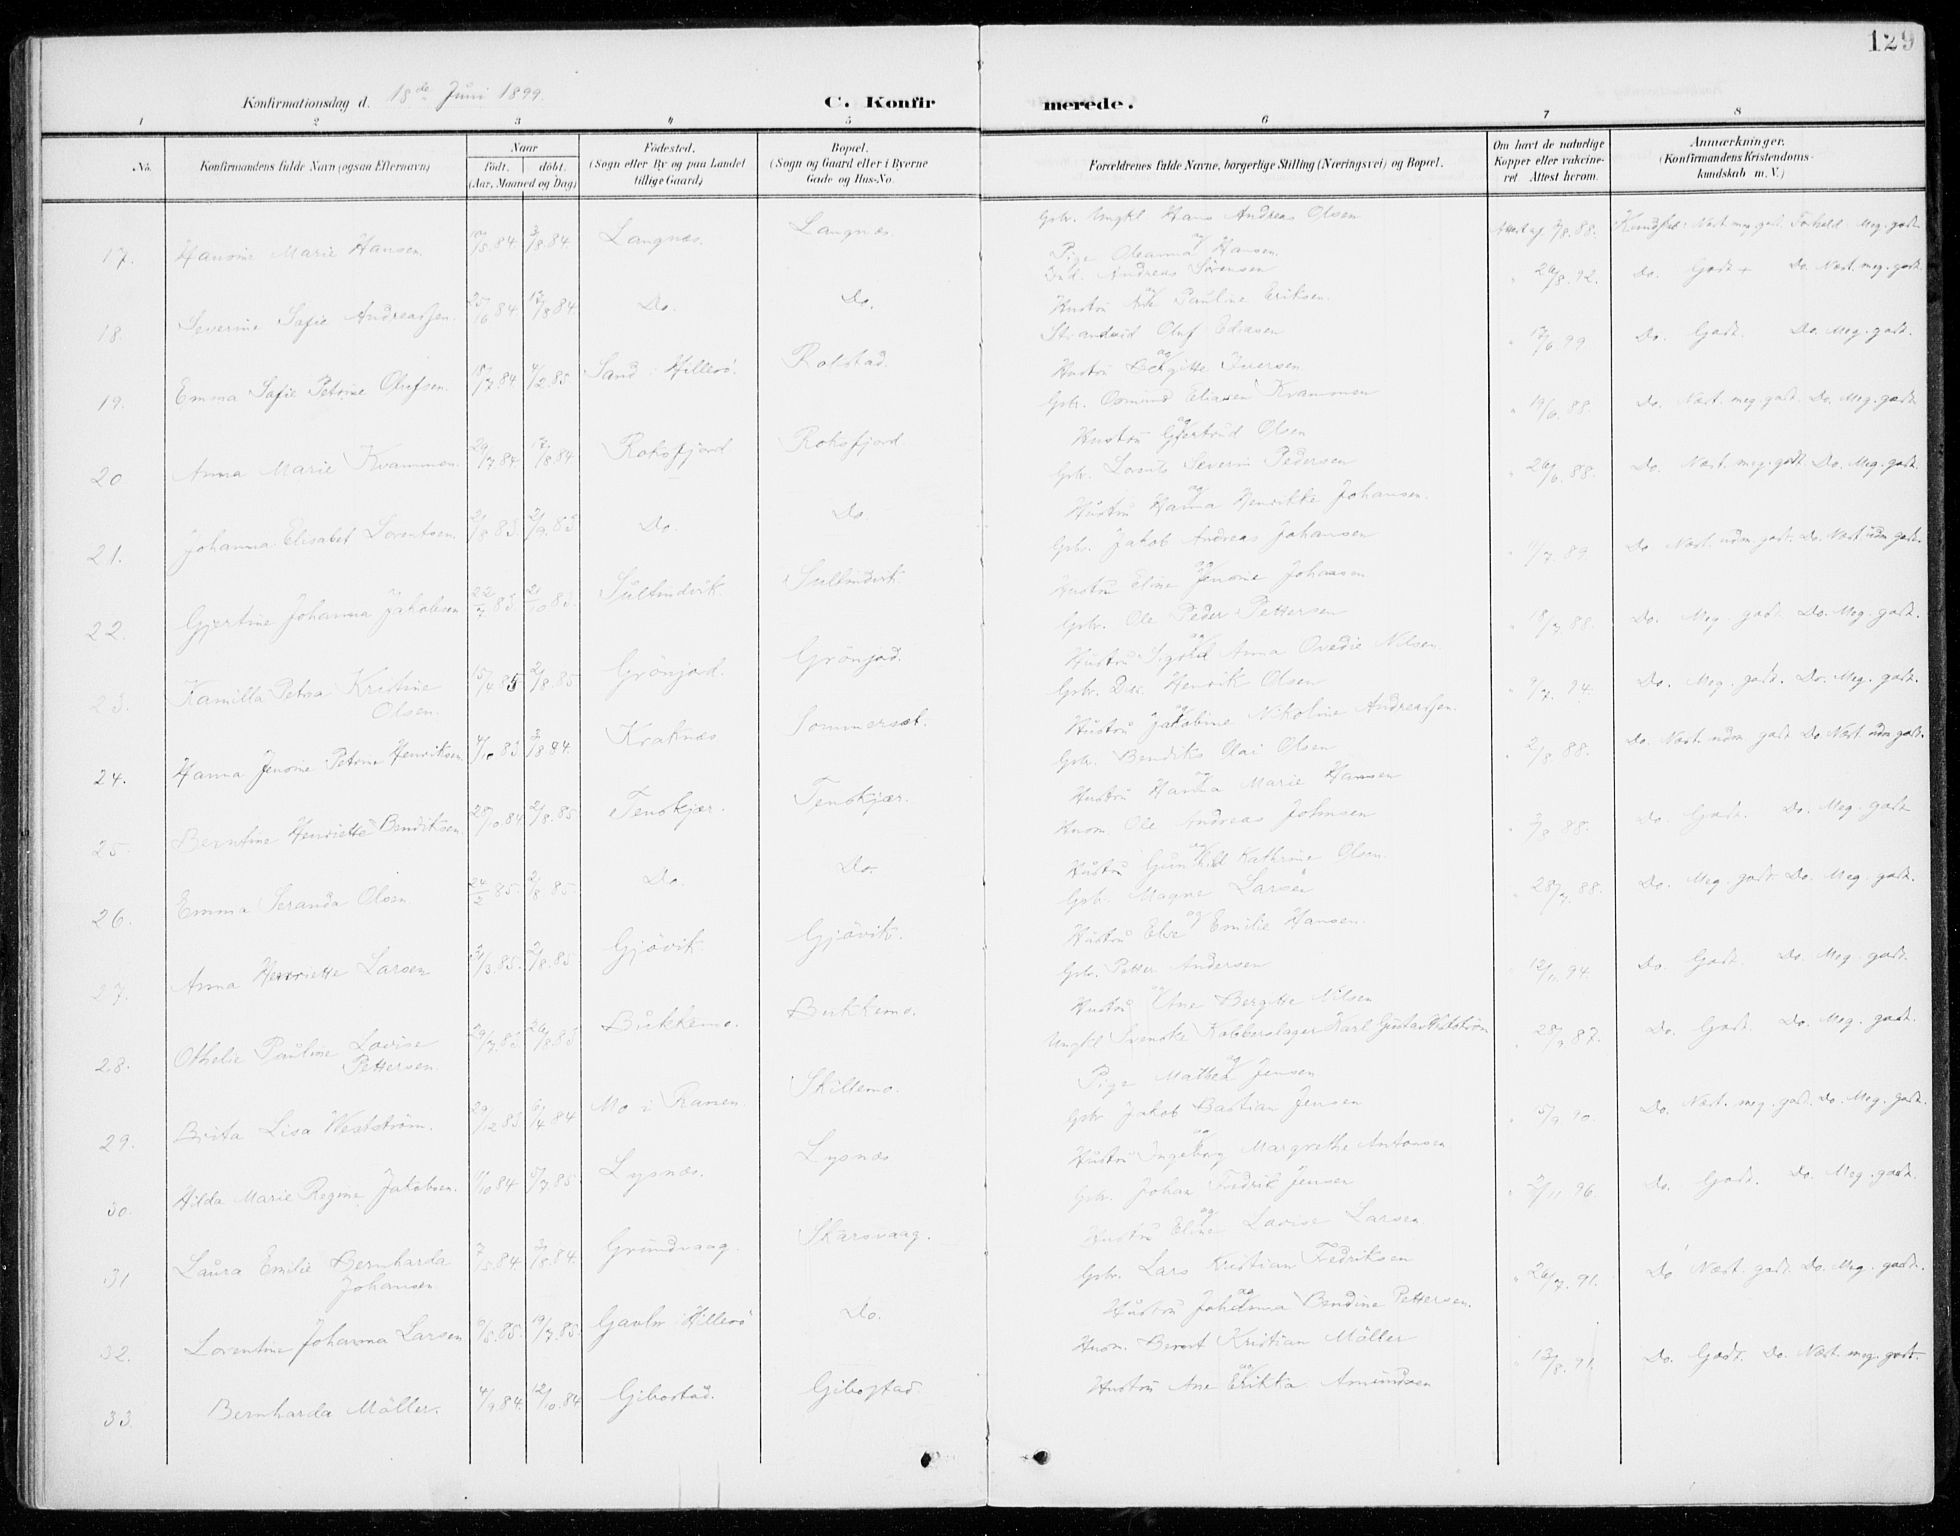 129
Konfirmationsdag d. 18de Juni 1899.
C. Konfirmerede.
1 2 3 4 5 6 7 8
No.
Konfirmandens fulde Navn (ogsaa Efternavn)
Naar
født. døbt.
(Aar, Maaned og Dag)
Fødested.
(Sogn eller By og paa Landet
tillige Gaard)
Bopæl.
(Sogn og Gaard eller i Byerne
Gade og Hus-No.
Forældrenes fulde Navne, borgerlige Stilling (Næringsvei) og Bopæl.
Om havt de naturlige
Kopper eller vakcine-
ret. Attest herom.
Anmærkninger.
(Konfirmandens Kristendoms-
kundskab m. V.)
17. Hansine Marie Hansen 3/8.84. Langnæs. Langnæs. Gbr. Ungkl Hans Andreas Olsen
og Pige Oleanna Hansen 7/8.88. Kundskab: Næst. meg. godt. Forhold: Meg. godt.
18. Severine Sofie Andreassen. 25/6 84. 17/8 84. Do. Do. Ind. Andreas Sørensen
og Hustru Pauline Eriksen. 26/8.92. Do. Godt + Do. Næst. meg. godt.
19. Emma Sofie Petrine Olufsen. 18/7 84. 4/2.85. Sand i Hillesø. Rolstad. Strandsid Oluf
og Hustru Bergitte Iversen. 17/6 99 Do. Godt. Do. Meg. godt.
20 Anna Marie Kvammen. 29/7 84. 17/8 84. Roksfjord Roksfjord Gbr. Osmund Eliasen Kvammen
og Hustru Gjertrud Olsen 19/6 88. Do. Næst. meg godt. Do. Meg. godt.
21. Johanna Elisabet Lorentsen. 21/8 83. 2/9.83 Do. Do. Gbr. Severin Pedersen
og Hustru Hanna Henrikke Johansen. 26/6 88. Do. Næst. meg. godt. Do. Meg. godt.
22. Gjertine Johanna Jakobsen 22/7 83. 21/10 83. Sultindvik. Sultindvik. Gbr. Jakob Andreas Johansen
og Hustru Eline Jensine Johansen 11/7 89 Do. Næst. udm. godt. Do. Næst udm godt.
23. Kamilla Petra Kristine
Olsen. 15/4 85 2/8.85 Grønjord. Grønjord. Gbr. Ole Peder Pettersen
og Hustru Anna Ovedie Nilsen. 18/7 88. Do. Meg. godt Do. Meg. godt.
24. Hanna Jensine Petrine Henriksen. 4/10 83 3/8 84. Kraknæs Sommersæt. Gbr. Henrik Olsen
og Hustru Jakobine Nikoline Andreassen. 9/7. 94. Do. Meg. godt. Do. Meg. godt.
25. Berntine Henriette Bendiksen. 28/10.84 2/8.85. Tenskjær. Tenskjær. Gbr. Bendiks Olai Olsen
og Hustru Hanna Marie Hansen 2/8 88. Do. Næst udm. godt Do. Næst. udm godt.
26. Emma Seranda Olsen 24/2 85. 2/8.85. Do. Do. Husm. Ole Andreas Johnsen
og Hustru Gunhild Kathrine Olsen. 3/8 88. Do. Godt. Do. Meg. godt
27. Anna Henriette Larsen 21/3.85. 2/8.85 Gjøvik Gjøvik. Gbr. Magne Larsen
og Hustru Emilie Hansen. 28/7.88. Do. Meg. godt Do. Meg. godt.
28. Othelie Pauline Lovise
Pettersen. 29/7.83. 26/8.83 Bukkemo. Bukkemo. Gbr. Petter Andersen
og Hustru Ane Bergitte Nilsen 12/11. 94. Do. Godt. Do. Meg. godt.
29. Brita Lisa Westström. 29/12 83. 6/4 84 Mo i Ranen. Skillemo. Ungkl Svenske Kobberslager Karl Gustav Westström
og Pige Mathea Jensen 28/9 87. Do. Godt. Do. Meg. godt.
30. Hilda Marie Regine Jakobsen. 11/10 84 5/7 85 Lysnæs. Lysnæs Gbr Jakob Bastian Jensen
og Hustru Ingeborg Margrethe Antonsen 15/9 90. Do. Næst. meg. godt. Do. Meg. godt.
31 Laura Emilie Bernharda
Johansen. 7/5.84. 3/8.84. Grundvaag. Skarsvaag. Gbr. Johan Fredrik Jensen
og Hustru Eline Lovise Larsen 2/11 96. Do. Godt. Do. Meg. godt.
32. Lorentine Johanna Larsen 9/5.85. 19/7.85. Gavlv. i Hillesø Do. Gbr. Lars Kristian Fredriksen
og Hustru Johanna Bendine Pettersen. 26/7. 91. Do Næst. godt. Do. Meg. godt.
33. Bernharda Møller. 4/9 84. 12/10.84 Gibostad. Gibostad. Husm. Berent Kristian Møller
og Hustru Ane Erikka Amundsen 13/8. 91. Do. Godt. Do. Næst. meg. godt.